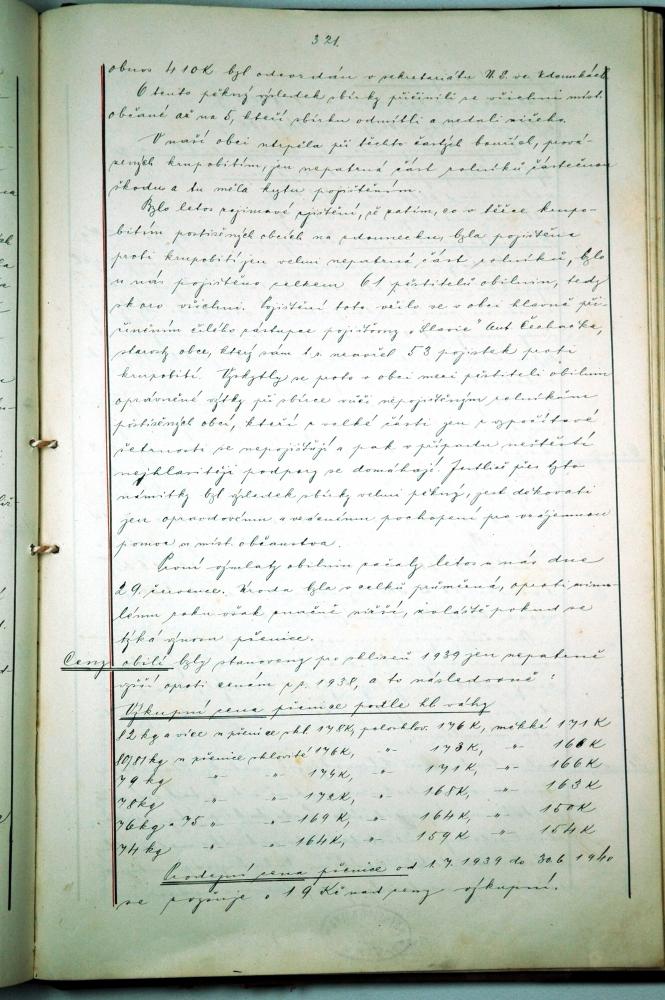 321.
obnos 410K byl odevzdán v sekretariátu N. S. ve Zdounkách.
O tento pěkný výsledek sbírky přičinili se všichni míst.
občané až na 5, kteří sbírku odmítli a nedali ničeho.
V naší obci utrpěla při těchto častých bouřích, prová-
zených krupobitím, jen nepatrná část rolníků částečnou
škodu a tu měla krytu pojištěním.
Bylo letos zajímavé zjištění, že zatím, co v těžce krupo-
bitím postižených obcích na zdounecku, byla pojištěna
proti krupobití jen velmi nepatrná část rolníků, bylo
u nás pojištěno celkem 61 pěstitelů obilnin, tedy
skoro všichni. Pojištění toto vžilo se v obci hlavně při-
činěním čilého zástupce pojišťovny „Slavie" Ant. Čecháčka,
starosty obce, který sám t. r. uzavřel 53 pojistek proti
krupobití. Vyskytly se proto v obci mezi pěstiteli obilnin
oprávněné výtky při sbírce vůči nepojištěným rolníkům
postižených obcí, kteří z velké části jen z vypočítavé
šetrnosti se nepojišťují a pak v případu neštěstí
nejhlasitěji podpory se domáhají. Jestliže přes tyto
námitky byl výsledek sbírky velmi pěkný, jest děkovati
jen opravdovému a vzácnému pochopení pro vzájemnou
pomoc u míst. občanstva.
První výmlaty obilnin začaly letos u nás dne
29. července. Úroda byla v celku průměrná, oproti minu-
lému roku však značně nižší, zvláště pokud se
týká výnosu pšenice.
Ceny obilí byly stanoveny pro sklizeň 1939 jen nepatrně
vyšší oproti cenám z r. 1938, a to následovně:
Výkupní cena pšenice podle hl. váhy
82 kg a více u pšenice skl. 178K, polosklov. 176 K, měkké 171 K
80/81 kg u pšenice sklovité 176K, -"- 173K, -"- 168K
79 kg " -"- 174K, -"- 171K, -"- 166K
78kg " -"- 172K, -"- 168K, -"- 163K
76kg - 75 " -"- 169K, -"- 164K, -"- 150K
74 kg " -"- 164K, -"- 159K -"- 154K
Prodejní cena pšenice od 1.7. 1939 do 30.6. 1940
se zvyšuje o 19 Kč nad ceny výkupní.